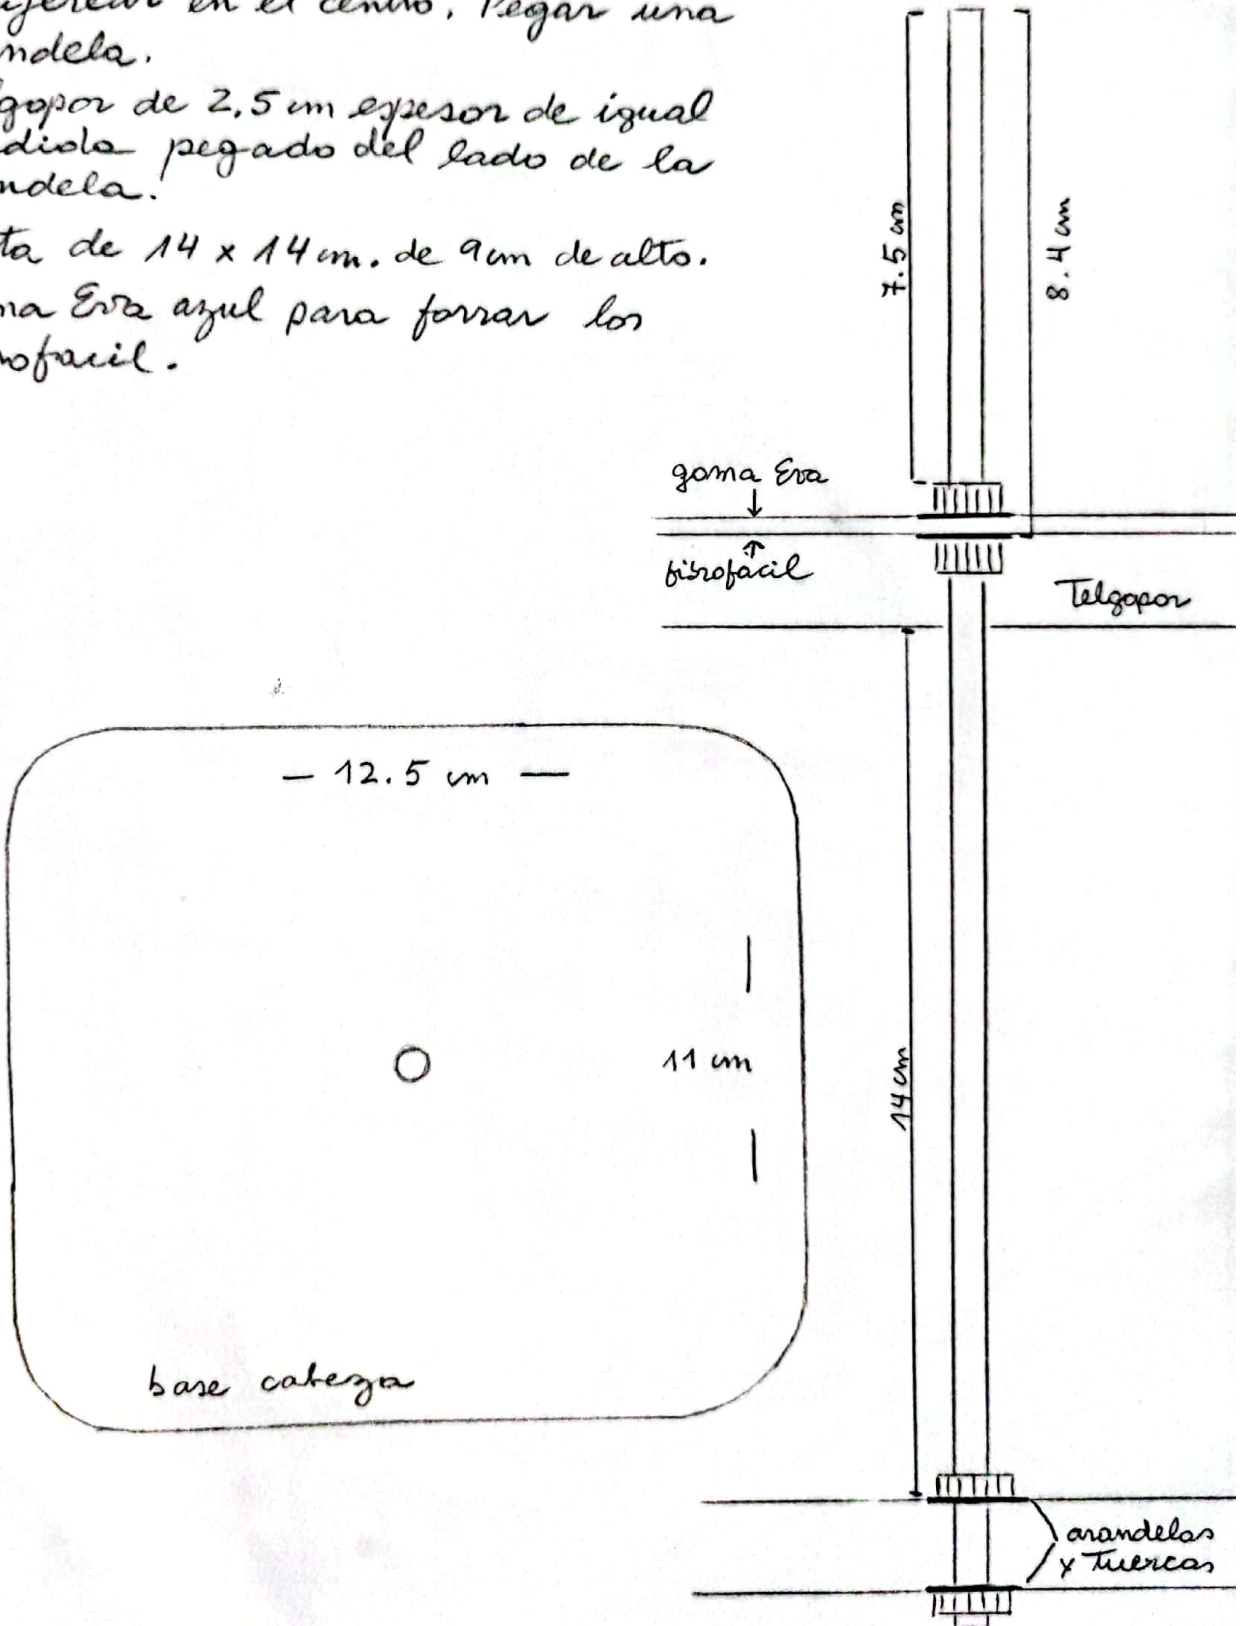 ujerear en el centro. Pegar una
ndela.
gopor de 2,5 cm espesor de igual
dida pegado del lado de la
ndela.
ta de 14 x 14 cm. de 9 cm de alto.
ma Eva azul para forrar los
rofacil.
7.5 cm
8.4 cm
goma Eva
fibrofácil
Telgopor
12.5 cm
11 cm
14 cm
base cabeza
arandelas
y Tuercas